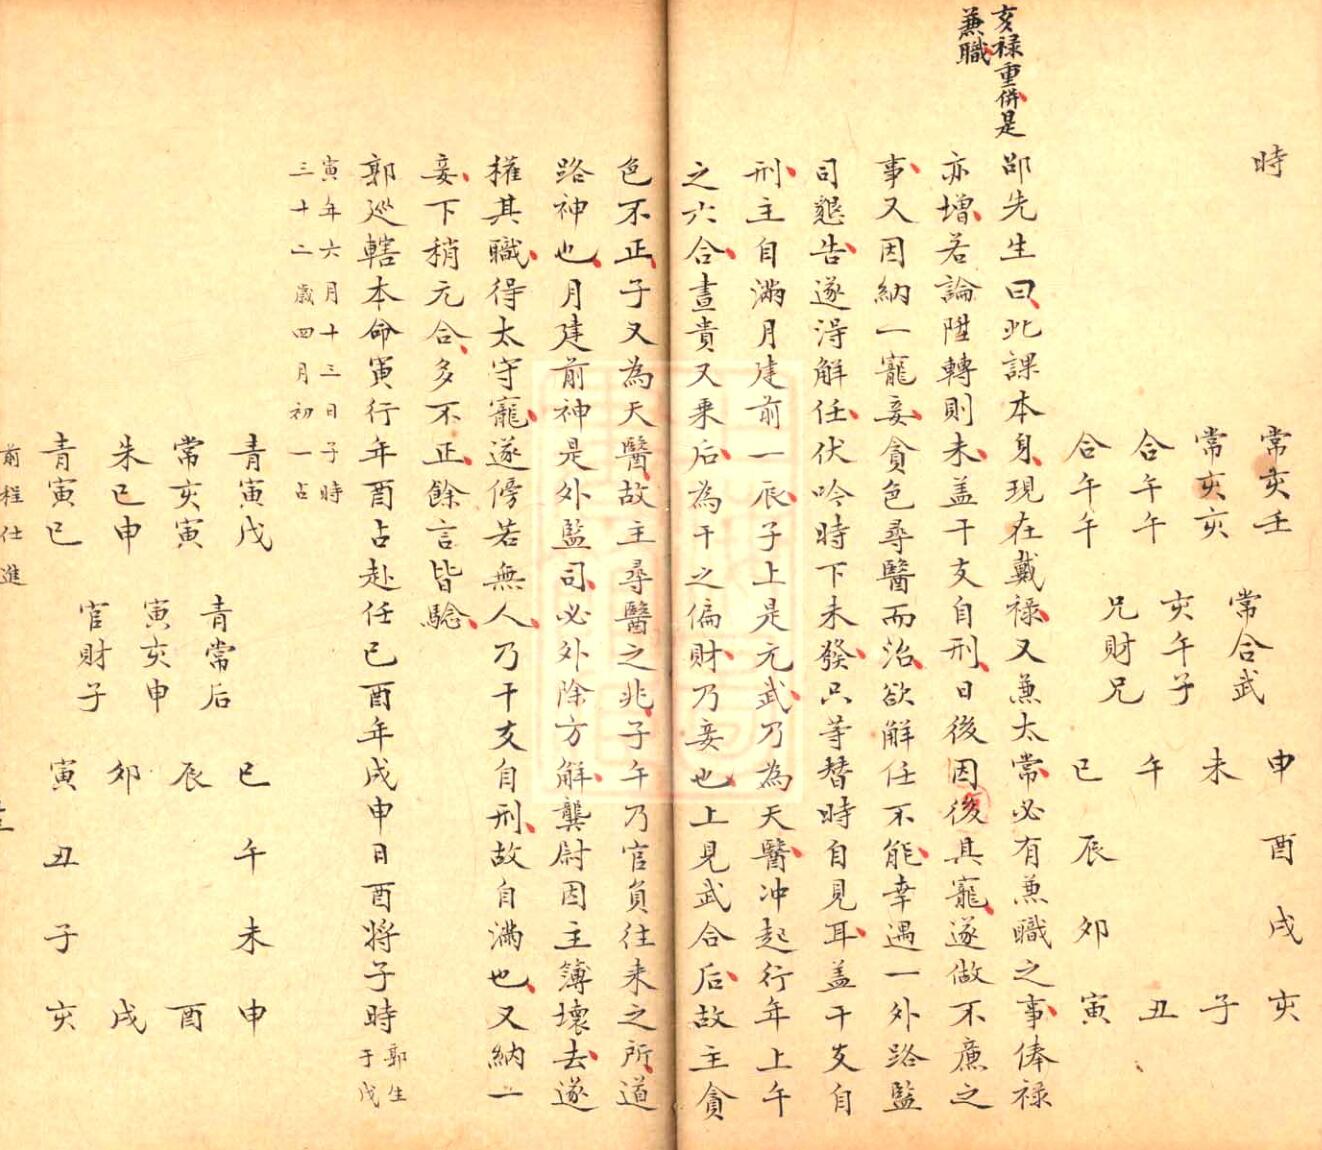 時
常亥壬
常亥亥
合午午
合午午
常合武
亥午子
兄財兄
申酉戌亥
未子
午丑
巳辰卯寅
亥禄重併是
兼職
邵先生曰此課本身現在戴禄又兼太常必有兼職之事俸禄
亦增若論陞轉則未盖干支自刑日後因後具寵遂做不廉之
事又因納一寵妾貪色尋醫而治欲解任不能幸遇一外路監
司懇告遂得解任伏吟時下未發只等替時自見耳盖干支自
刑主自滿月建前一辰子上是元武乃為天醫冲起行年上午
之六合晝貴又乘后為干之偏財乃妾也上見武合后故主貪
色不正子又為天醫故主尋醫之兆子午乃官員往来之所道
路神也月建前神是外監司必外除方解龔尉因主簿壞去遂
權其職得太守寵遂傍若無人乃干支自刑故自滿也又納一
妾下稍元合多不正餘言皆驗
郭巡轄本命寅行年酉占赴任己酉年戌申日酉将子時郭生
于戊
寅年六月十三日子時
三十二歲四月初一占
青寅戌
常亥寅
朱巳申
青寅巳
青常后
寅亥申
官財子
巳午未申
辰酉
卯戌
寅丑子亥
前程仕進